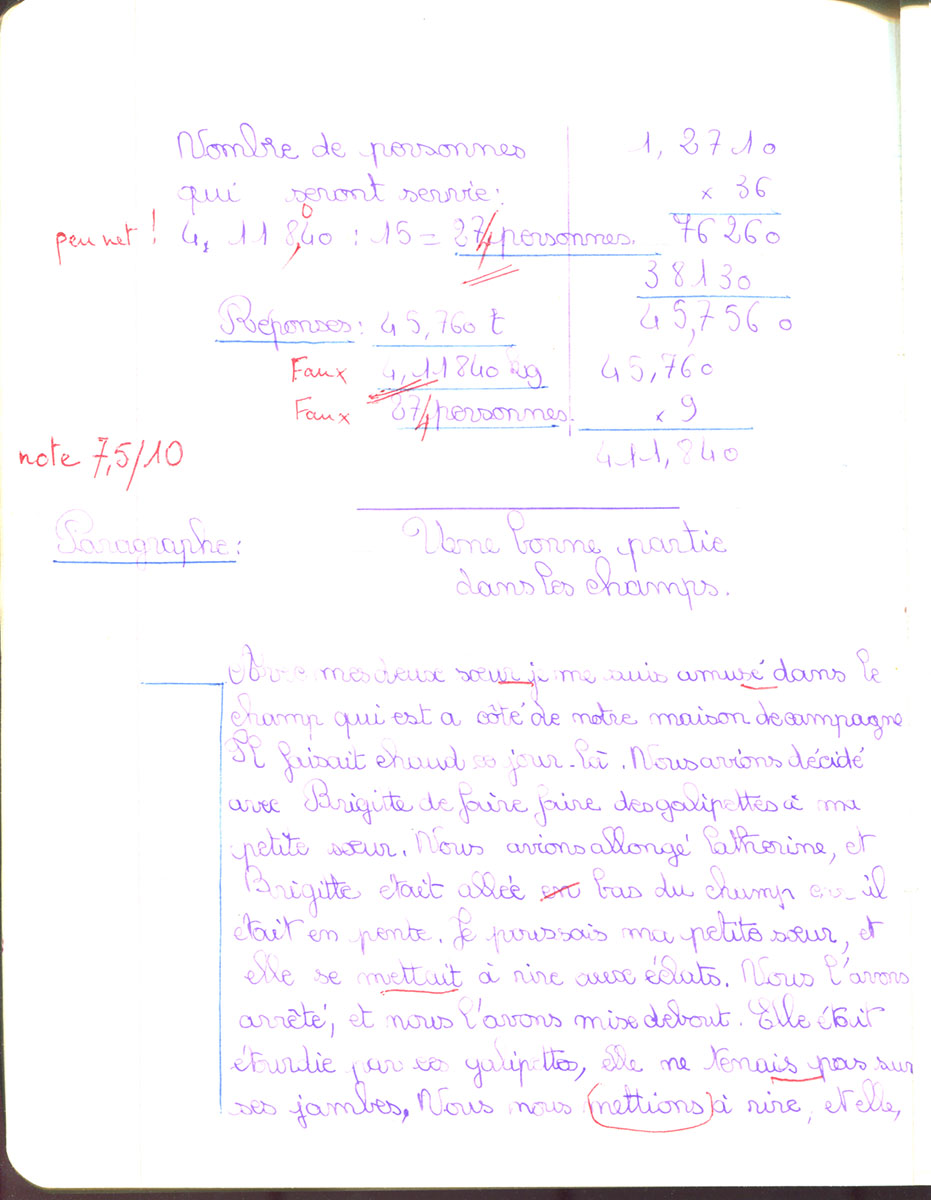 Nombre de personnes
qui seront servie:
peu net ! 4,118,40 : 15 = 274 personnes.
Réponses: 45,760 t
Faux 4,11840 kg
Faux 274 personnes.
note 7,5/10
1,2710
x 36
76260
38130
45,7560
45,760
x 9
411,840
Paragraphe:
Une bonne partie
dans les champs.
Avec mes deux sœur je me suis amusé dans le
champ qui est a côté de notre maison de campagne
Il faisait chaud ce jour-là. Nous avions décidé
avec Brigitte de faire faire des galipettes à ma
petite sœur. Nous avions allongé Catherine, et
Brigitte était allée en bas du champ il
était en pente. Je poussais ma petite sœur, et
elle se mettait à rire aux éclats. Nous l'avons
arrêté, et nous l'avons mise debout. Elle était
éturdie par ces galipettes, elle ne tenais pas sur
ses jambes, Nous nous mettions à rire, et elle,